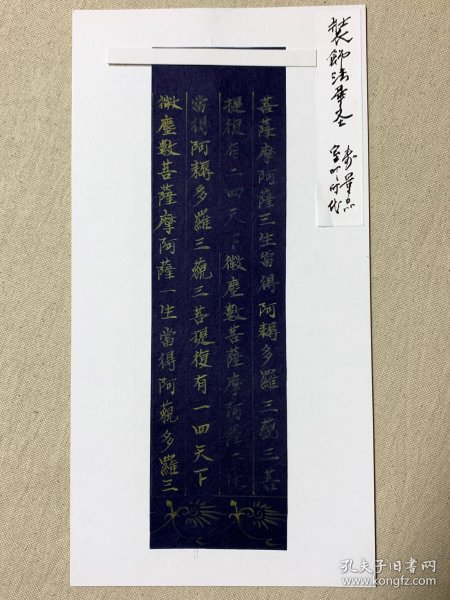 裝飾法華経
壽量品
室町時代
菩薩摩訶薩三生當得阿耨多羅三藐三菩
提復有二四天下微塵數菩薩摩訶薩二生
當得阿耨多羅三藐三菩提復有一四天下
微塵數菩薩摩訶薩一生當得阿耨多羅三
孔夫子旧书网
www.kongfz.com